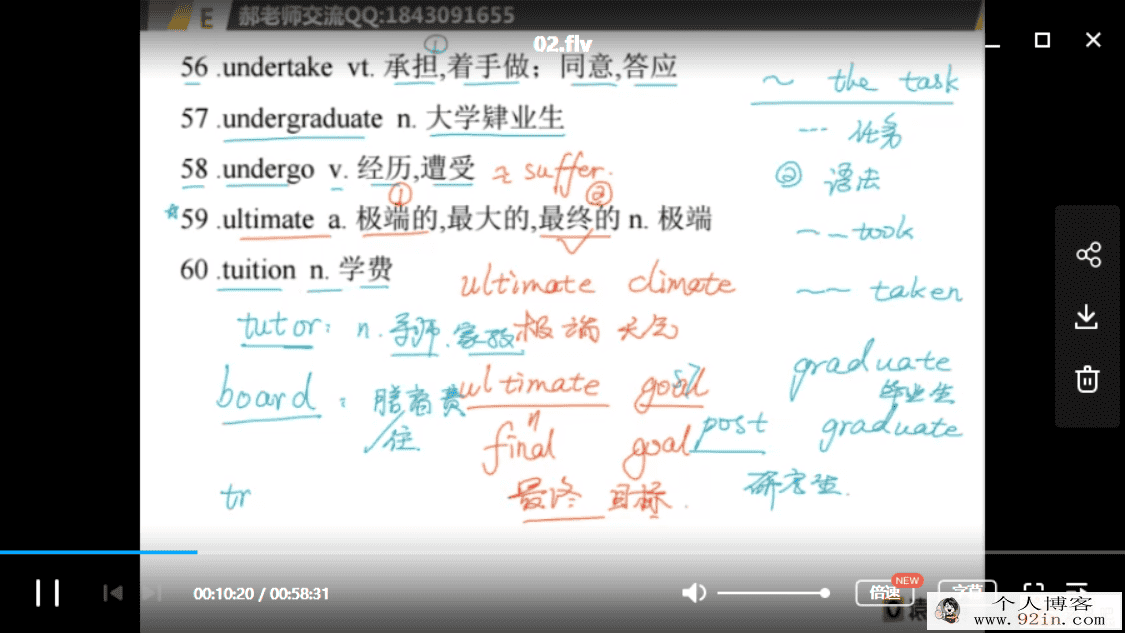 E 郝老师交流QQ:1843091655
02.flv
① 
56 .undertake vt. 承担,着手做；同意,答应
~ the task
57 .undergraduate n. 大学肄业生
--- 任务
58 .undergo v. 经历,遭受 ≈ suffer.
② 语法
① ②
59 .ultimate a. 极端的,最大的,最终的 n. 极端
~ took
60 .tuition n. 学费
ultimate climate
~ taken
tutor: n. 导师.家教
极端 天气
graduate
毕业生
board : 膳宿费
住
ultimate goal
post graduate
final goal
研究生.
tr
最终 目标.
00:10:20 / 00:58:31
倍速
NEW
字幕
个人博客
www.92in.com